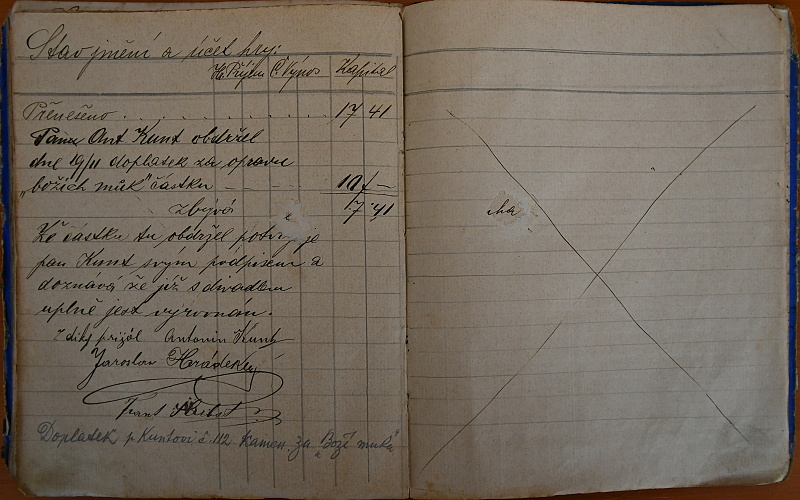 Stav jmění a účet hry:
Příjem Č. Výnos Kapital
Přenešeno 17 41
Panu Ant Kunt obdržel
dne 19/II doplatek za opravu
„božích muk" částku 10 f —
zbývá 7·41
Že částku tu obdržel potvrzuje
pan Kunt svým podpisem a
doznává že již s divadlem
uplně jest vyrovnán.
z díky přijal Antonin Kunt
Jaroslav Hrádeký
Frant
Doplatek p Kuntovi č. 112 kamen. za „Boží muka"